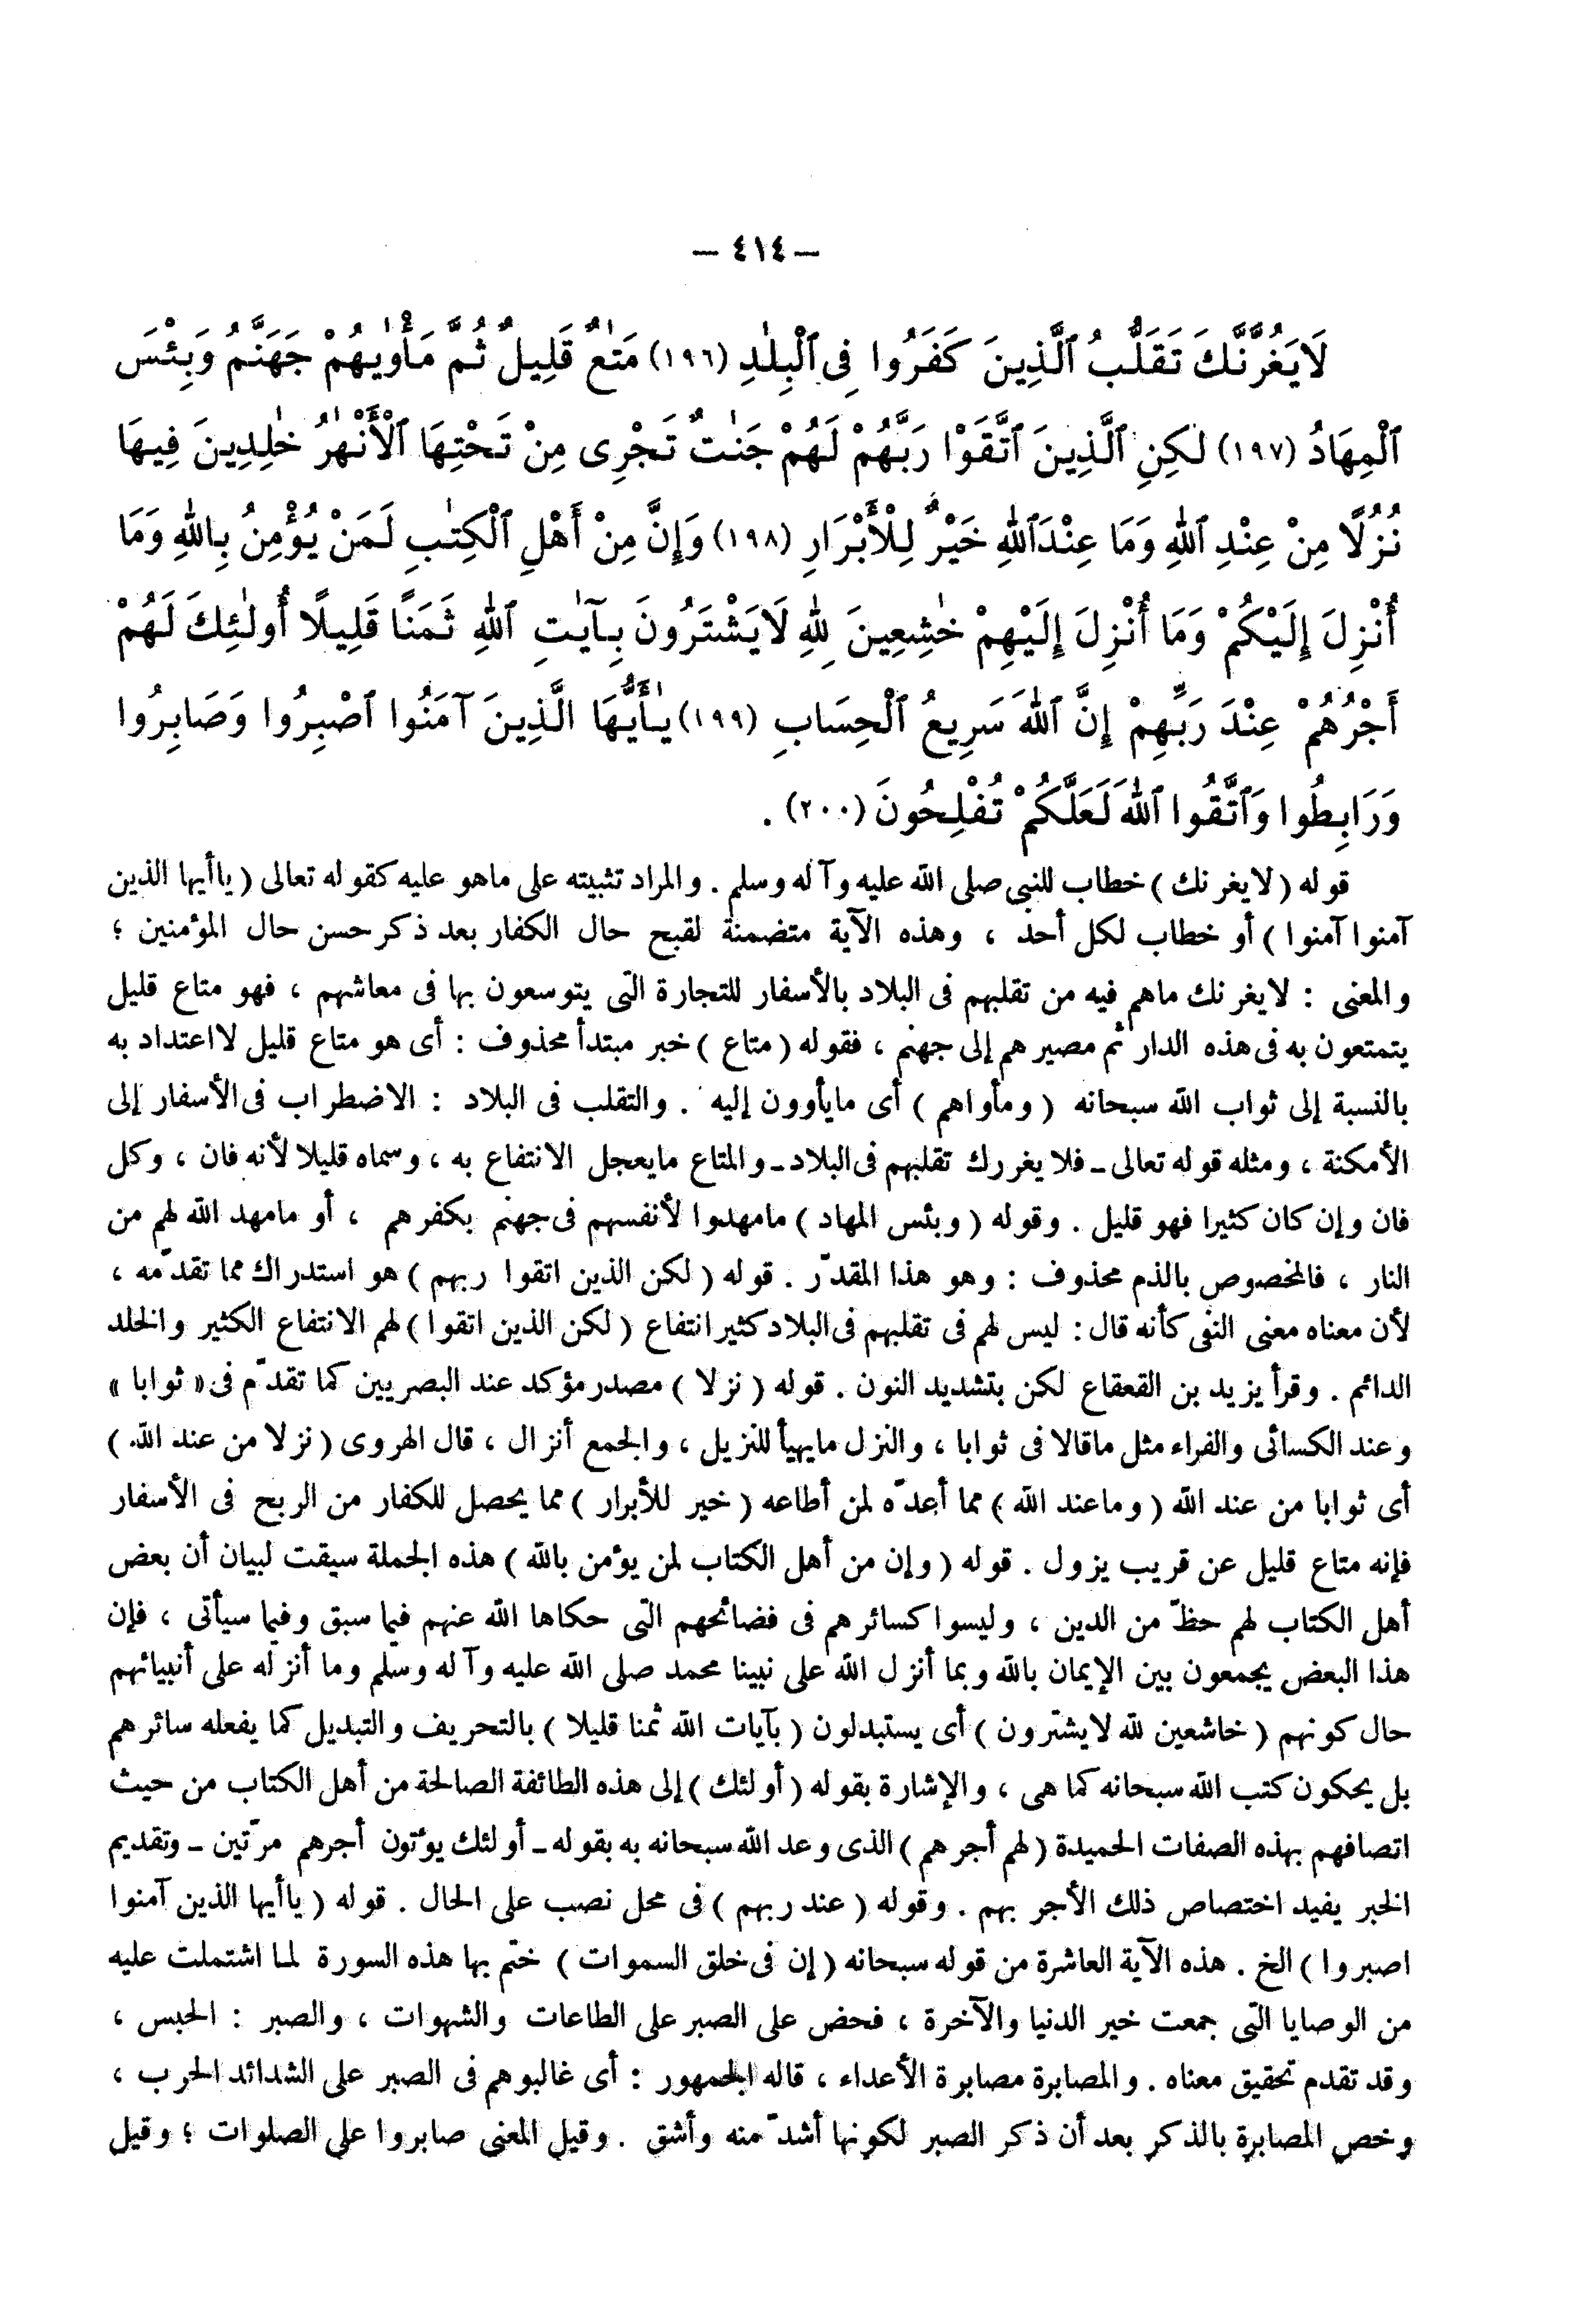 — ٤١٤ —
لَايَغُرَّنَّكَ تَقَلُّبُ ٱلَّذِينَ كَفَرُوا فِى ٱلْبِلٰدِ (١٩٦) مَتٰعٌ قَلِيلٌ ثُمَّ مَأْوٰيهُمْ جَهَنَّمُ وَبِئْسَ
ٱلْمِهَادُ (١٩٧) لٰكِنِ ٱلَّذِينَ ٱتَّقَوْا رَبَّهُمْ لَهُمْ جَنّٰتٌ تَجْرِى مِنْ تَحْتِهَا ٱلْأَنْهٰرُ خٰلِدِينَ فِيهَا
نُزُلًا مِنْ عِنْدِ ٱللّٰهِ وَمَا عِنْدَٱللّٰهِ خَيْرٌ لِلْأَبْرَارِ (١٩٨) وَإِنَّ مِنْ أَهْلِ ٱلْكِتٰبِ لَمَنْ يُؤْمِنُ بِاللّٰهِ وَمَا
أُنْزِلَ إِلَيْكُمْ وَمَا أُنْزِلَ إِلَيْهِمْ خٰشِعِينَ لِلّٰهِ لَايَشْتَرُونَ بِآيٰتِ ٱللّٰهِ ثَمَنًا قَلِيلًا أُولٰئِكَ لَهُمْ
أَجْرُهُمْ عِنْدَ رَبِّهِمْ إِنَّ ٱللّٰهَ سَرِيعُ ٱلْحِسَابِ (١٩٩) يٰأَيُّهَا الَّذِينَ آمَنُوا ٱصْبِرُوا وَصَابِرُوا
وَرَابِطُوا وَٱتَّقُوا ٱللّٰهَ لَعَلَّكُمْ تُفْلِحُونَ (٢٠٠) .
قوله ( لايغرنك ) خطاب للنبى صلى الله عليه وآله وسلم . والمراد تثبيته على ماهو عليه كقوله تعالى ( ياأيها الذين
آمنوا آمنوا ) أو خطاب لكل أحد ، وهذه الآية متضمنة لقبح حال الكفار بعد ذكر حسن حال المؤمنين ؛
والمعنى : لايغرنك ماهم فيه من تقلبهم فى البلاد بالأسفار للتجارة التى يتوسعون بها فى معاشهم ، فهو متاع قليل
يتمتعون به فى هذه الدار ثم مصيرهم إلى جهنم ، فقوله ( متاع ) خبر مبتدأ محذوف : أى هو متاع قليل لااعتداد به
بالنسبة إلى ثواب الله سبحانه ( ومأواهم ) أى مايأوون إليه . والتقلب فى البلاد : الاضطراب فى الأسفار إلى
الأمكنة ، ومثله قوله تعالى ـ فلا يغررك تقلبهم فى البلاد ـ والمتاع مايعجل الانتفاع به ، وسماه قليلا لأنه فان ، وكل
فان وإن كان كثيرا فهو قليل . وقوله ( وبئس المهاد ) مامهدوا لأنفسهم فى جهنم بكفرهم ، أو مامهد الله لهم من
النار ، فالمخصوص بالذم محذوف : وهو هذا المقدّر . قوله ( لكن الذين اتقوا ربهم ) هو استدراك مما تقدّمه ،
لأن معناه معنى النفى كأنه قال : ليس لهم فى تقلبهم فى البلاد كثير انتفاع ( لكن الذين اتقوا ) لهم الانتفاع الكثير والخلد
الدائم . وقرأ يزيد بن القعقاع لكن بتشديد النون . قوله ( نزلا ) مصدر مؤكد عند البصريين كما تقدّم فى « ثوابا »
وعند الكسائى والفراء مثل ماقالا فى ثوابا ، والنزل مايهيأ للنزيل ، والجمع أنزال ، قال الهروى ( نزلا من عند الله )
أى ثوابا من عند الله ( وماعند الله ) مما أعدّه لمن أطاعه ( خير للأبرار ) مما يحصل للكفار من الربح فى الأسفار
فإنه متاع قليل عن قريب يزول . قوله ( وإن من أهل الكتاب لمن يؤمن بالله ) هذه الجملة سيقت لبيان أن بعض
أهل الكتاب لهم حظّ من الدين ، وليسوا كسائرهم فى فضائحهم التى حكاها الله عنهم فيما سبق وفيما سيأتى ، فإن
هذا البعض يجمعون بين الإيمان بالله وبما أنزل الله على نبينا محمد صلى الله عليه وآله وسلم وما أنزله على أنبيائهم
حال كونهم ( خاشعين لله لايشترون ) أى يستبدلون ( بآيات الله ثمنا قليلا ) بالتحريف والتبديل كما يفعله سائرهم
بل يحكون كتب الله سبحانه كما هى ، والإشارة بقوله ( أولئك ) إلى هذه الطائفة الصالحة من أهل الكتاب من حيث
اتصافهم بهذه الصفات الحميدة ( لهم أجرهم ) الذى وعد الله سبحانه به بقوله ـ أولئك يؤتون أجرهم مرّتين ـ وتقديم
الخبر يفيد اختصاص ذلك الأجر بهم . وقوله ( عند ربهم ) فى محل نصب على الحال . قوله ( ياأيها الذين آمنوا
اصبروا ) الخ . هذه الآية العاشرة من قوله سبحانه ( إن فى خلق السموات ) ختم بها هذه السورة لما اشتملت عليه
من الوصايا التى جمعت خير الدنيا والآخرة ، فحض على الصبر على الطاعات والشهوات ، والصبر : الحبس ،
وقد تقدم تحقيق معناه . والمصابرة مصابرة الأعداء ، قاله الجمهور : أى غالبوهم فى الصبر على الشدائد الحرب ،
وخص المصابرة بالذكر بعد أن ذكر الصبر لكونها أشدّ منه وأشق . وقيل المعنى صابروا على الصلوات ؛ وقيل